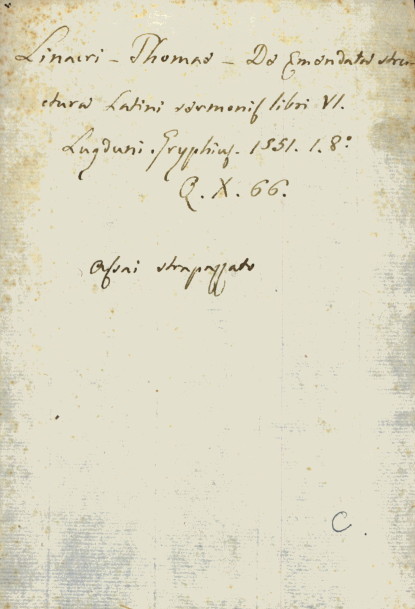 Linacri - Thomae - De Emendata stru-
cturae Latini sermonis libri VI.
Lugduni. Gryphius. 1551. 1. 8°
Q. X. 66.
assai strapazzato
C